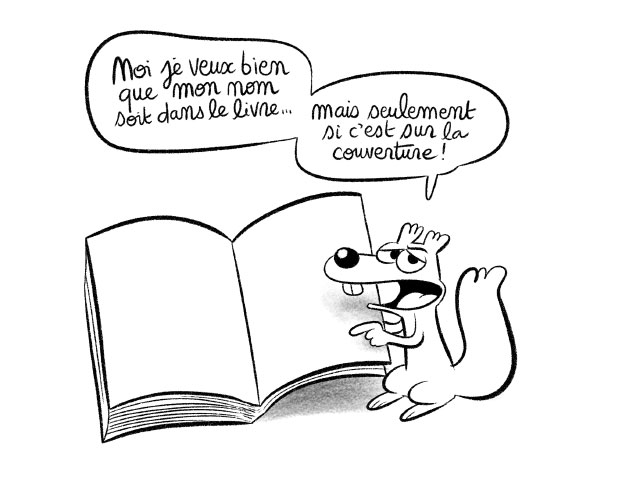 Moi je veux bien
que mon nom
soit dans le livre...
mais seulement
si c'est sur la
couverture !